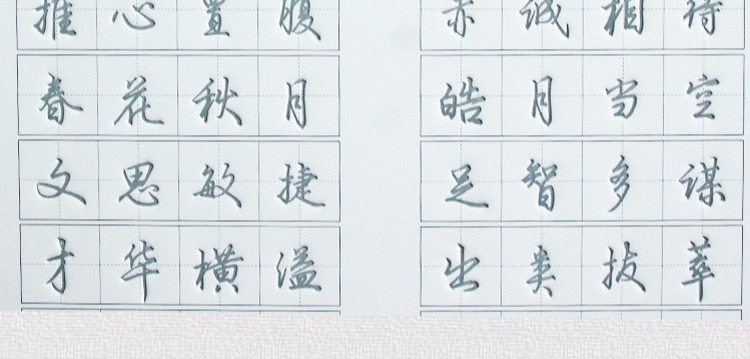 推心置腹 赤诚相待
春花秋月 皓月当空
文思敏捷 足智多谋
才华横溢 出类拔萃